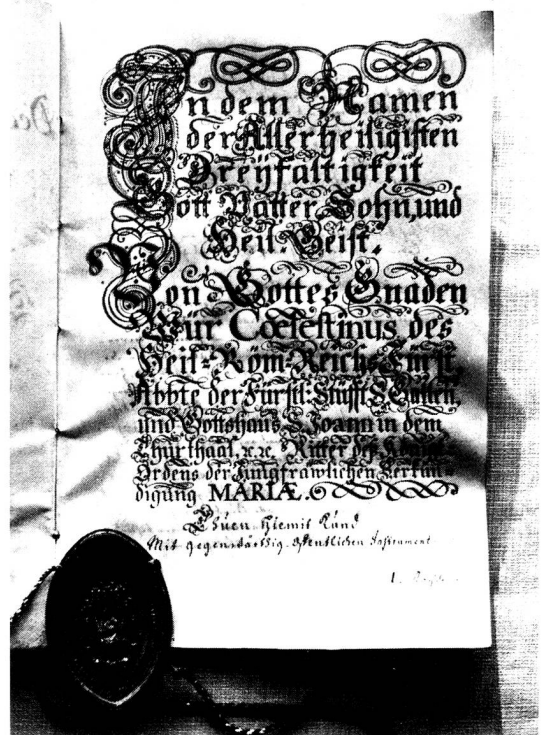 In dem Namen
der Allerheiligisten
Dreyfaltigkeit
Gott Vatter, Sohn, und
Heil: Geist.
Von Gottes Gnaden
Wür Cœlestinus des
Heil: Röm: Reichs Fürst,
Abbte der Fürstl: Stüfft S. Gallen,
und Gottshaus S. Joann in dem
Thurthaal, ꝛc. ꝛc. Ritter des
Ordens der Jungfrawlichen Verkün-
digung MARIÆ.
Thuen hiemit Kund
Mit gegenwärtig-offentlichen Instrument